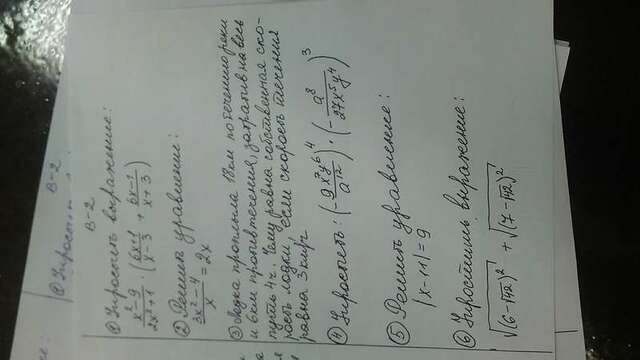 В-2
① Упростить
В-2
① Упростить выражение:
(x²-9)/(2x²+1) · ((6x+1)/(x-3) + (6x-1)/(x+3))
② Решить уравнение:
(3x²-4)/x = 2x
③ Лодка проплыла 18км по течению реки
и 6км против течения, затратив на весь
путь 4ч. Чему равна собственная ско-
рость лодки, если скорость течения
равна 3 км/ч
④ Упростить: (-9x⁷y⁶/a¹²)⁴ · (-a⁸/27x⁵y⁴)³
⑤ Решить уравнение:
|x-11|=9
⑥ Упростить выражение:
√(6-√42)² + √(7-√42)²